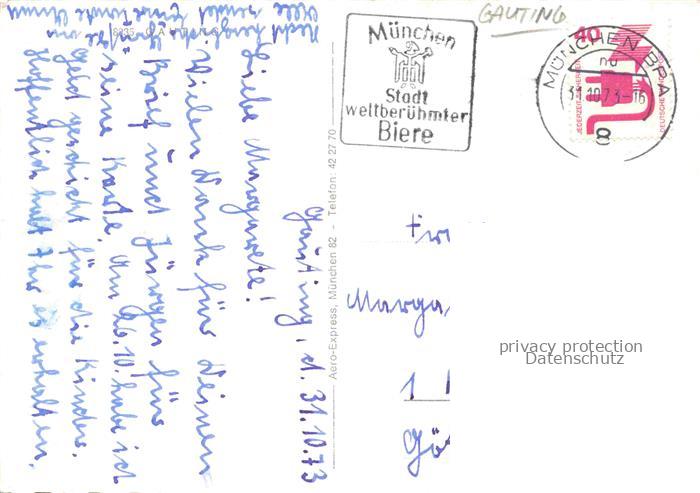 GAUTING
München
Stadt
weltberühmter
Biere
MÜNCHEN BPA
31.10.73-16
40
JEDERZEIT SICHERHEIT
DEUTSCHE BUNDESPOST
Aero-Express, München 82 - Telefon: 42 27 70
Gauting, d. 31.10.73
Liebe Margarete!
Vielen Dank für Deinen
Brief und Jürgen für
seine Karte. Am 26.10. habe ich
Geld geschickt für die Kinder.
Hoffentlich habt Ihr es erhalten.
Recht herzliche
Marga
1
Gö
privacy protection
Datenschutz